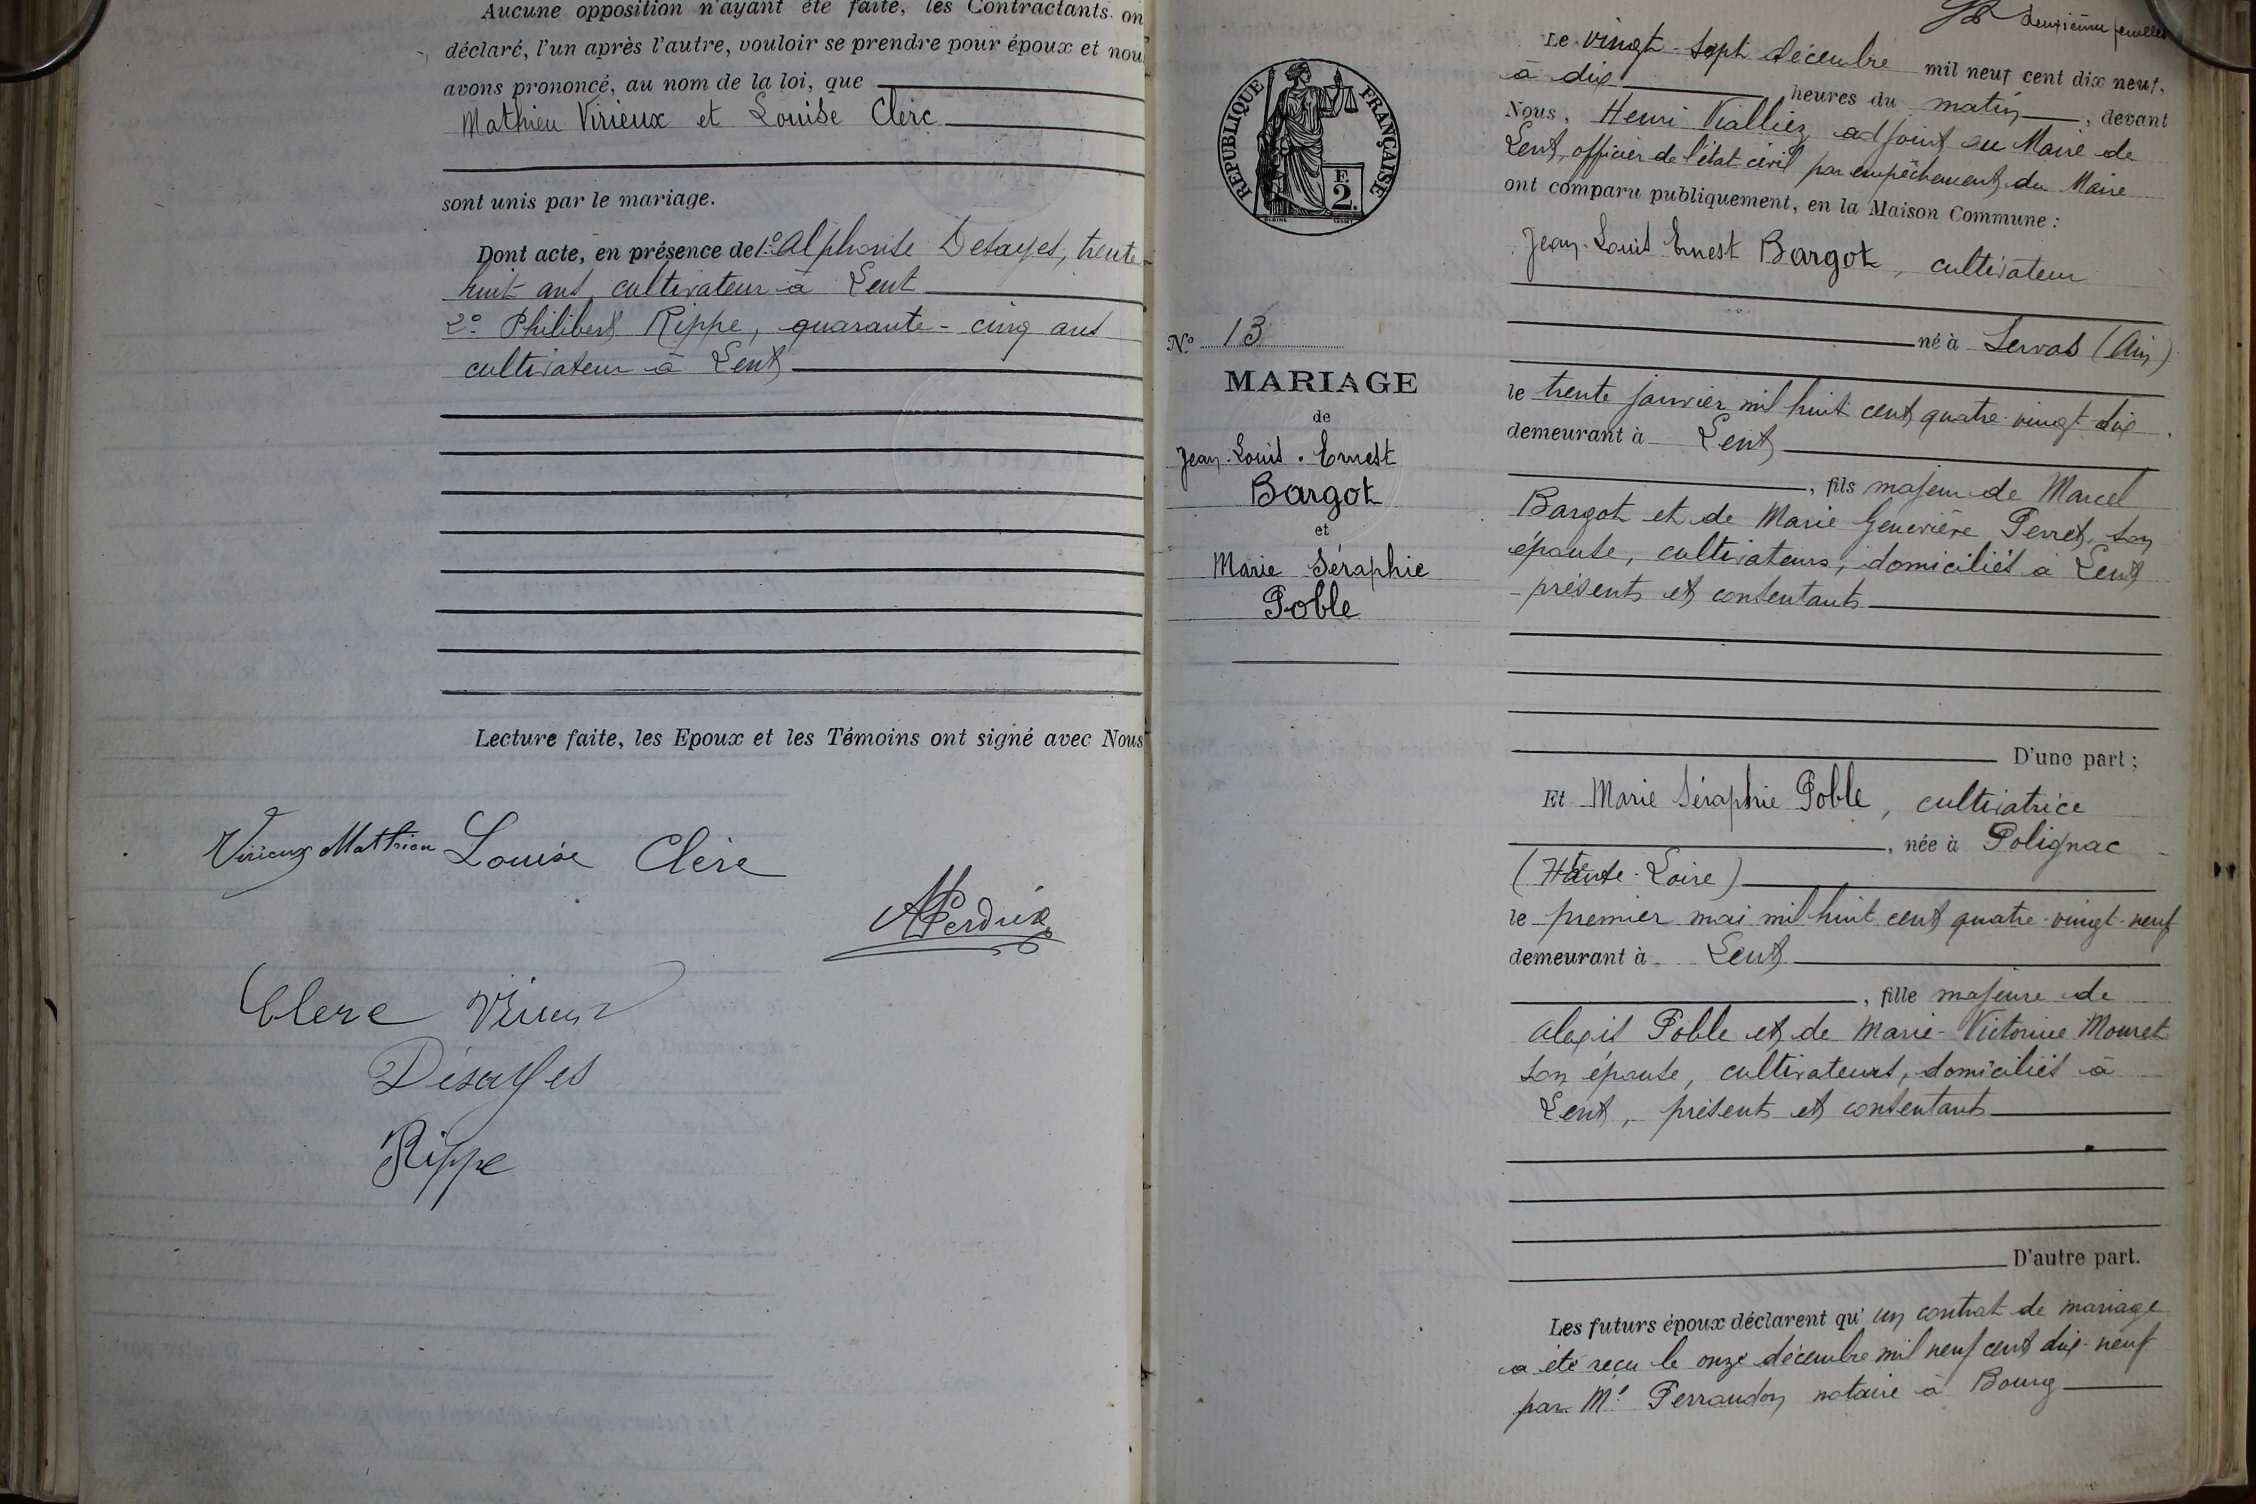 Aucune opposition n'ayant été faite, les Contractants on
déclaré, l'un après l'autre, vouloir se prendre pour époux et nou
avons prononcé, au nom de la loi, que
Mathieu Virieux et Louise Clerc
sont unis par le mariage.
Dont acte, en présence de 1° Alphonse Desayes, trente
huit ans, cultivateur à Lent
2° Philibert Rippe, quarante-cinq ans
cultivateur à Lent
Lecture faite, les Epoux et les Témoins ont signé avec Nous
Virieux Mathieu Louise Clerc
APerdrix
Clerc Virieux
Désayes
Rippe
RÉPUBLIQUE FRANÇAISE
F.
2.
N° 13
MARIAGE
de
Jean-Louis-Ernest
Bargot
et
Marie Séraphie
Poble
deuxième feuillet
Le vingt-sept décembre mil neuf cent dix neuf,
à dix heures du matin, devant
Nous, Henri Vialliez adjoint au Maire de
Lent, officier de l'état civil par empêchement du Maire
ont comparu publiquement, en la Maison Commune :
Jean-Louis Ernest Bargot, cultivateur
né à Servas (Ain)
le trente janvier mil huit cent quatre-vingt dix
demeurant à Lent
, fils majeur de Marcel
Bargot et de Marie Geneviève Perret, son
épouse, cultivateurs, domiciliés à Lent
présents et consentants
D'une part ;
Et Marie Séraphie Poble, cultivatrice
, née à Polignac
(Haute-Loire)
le premier mai mil huit cent quatre-vingt-neuf
demeurant à Lent
, fille majeure de
Alexis Poble et de Marie-Victorine Mouret
son épouse, cultivateurs, domiciliés à
Lent, présents et consentants
D'autre part.
Les futurs époux déclarent qu'un contrat de mariage
a été reçu le onze décembre mil neuf cent dix-neuf
par Me Perraudon notaire à Bourg